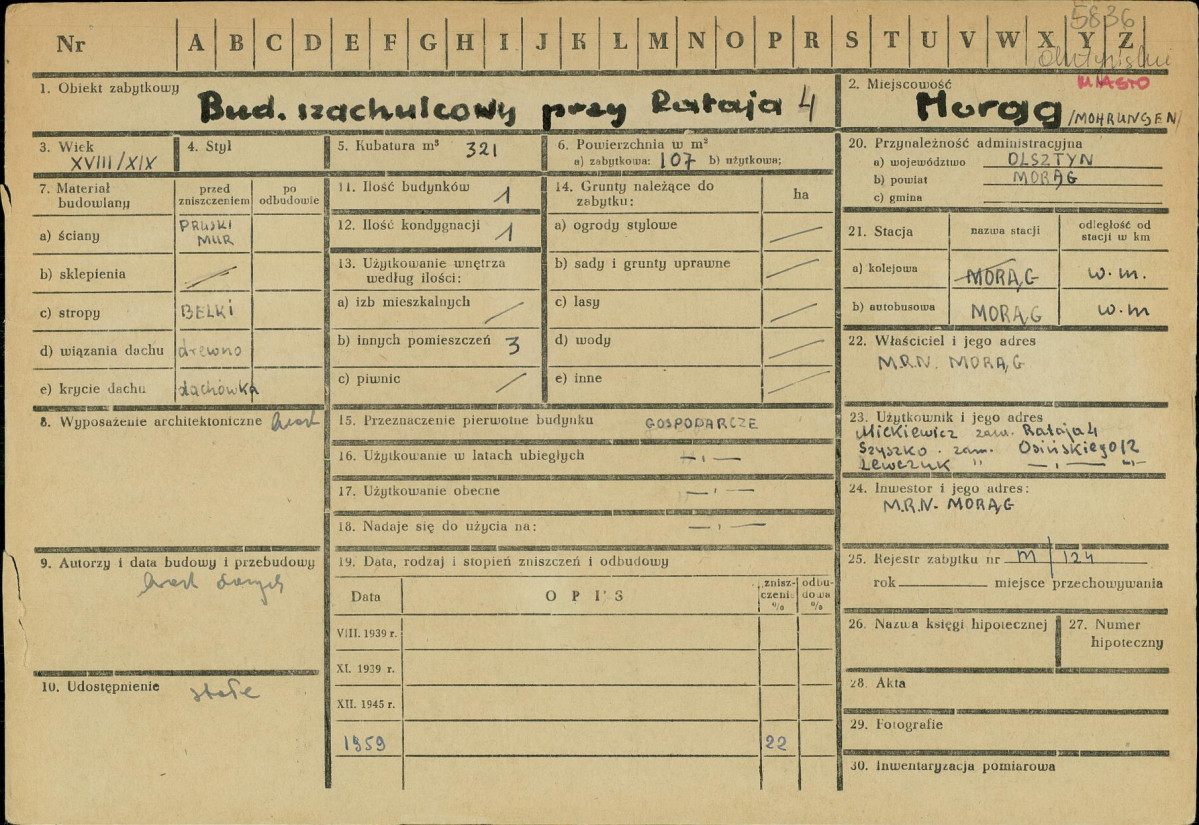 5836
Nr A B C D E F G H I J K L M N O P R S T U V W X Y Z
1. Obiekt zabytkowy
Bud. szachulcowy przy Rataja 4
2. Miejscowość
MIASTO
Morąg /MOHRUNGEN/
3. Wiek
XVIII/XIX
4. Styl
5. Kubatura m³ 321
6. Powierzchnia w m²
a) zabytkowa: 107 b) użytkowa;
7. Materiał budowlany
przed zniszczeniem
po odbudowie
a) ściany PRUSKI MUR
b) sklepienia /
c) stropy BELKI
d) wiązania dachu drewno
e) krycie dachu dachówka
8. Wyposażenie architektoniczne brak
9. Autorzy i data budowy i przebudowy
brak danych
10. Udostępnienie stałe
11. Ilość budynków 1
12. Ilość kondygnacji 1
13. Użytkowanie wnętrza według ilości:
a) izb mieszkalnych /
b) innych pomieszczeń 3
c) piwnic /
14. Grunty należące do zabytku: ha
a) ogrody stylowe /
b) sady i grunty uprawne /
c) lasy /
d) wody /
e) inne /
15. Przeznaczenie pierwotne budynku GOSPODARCZE
16. Użytkowanie w latach ubiegłych — „ —
17. Użytkowanie obecne — „ —
18. Nadaje się do użycia na: — „ —
19. Data, rodzaj i stopień zniszczeń i odbudowy
Data OPIS zniszczeni % odbudowa %
VIII. 1939 r.
XI. 1939 r.
XII. 1945 r.
1959 22
20. Przynależność administracyjna
a) województwo OLSZTYN
b) powiat MORĄG
c) gmina
21. Stacja nazwa stacji odległość od stacji w km
a) kolejowa MORĄG w.m.
b) autobusowa MORĄG w.m
22. Właściciel i jego adres
M.R.N. MORĄG
23. Użytkownik i jego adres
Mickiewicz zam. Rataja 4
Szyszko . zam. Osińskiego 12
Lewczuk " — „ — "-
24. Inwestor i jego adres:
M.R.N. MORĄG
25. Rejestr zabytku nr M/124
rok miejsce przechowywania
26. Nazwa księgi hipotecznej
27. Numer hipoteczny
28. Akta
29. Fotografie
30. Inwentaryzacja pomiarowa